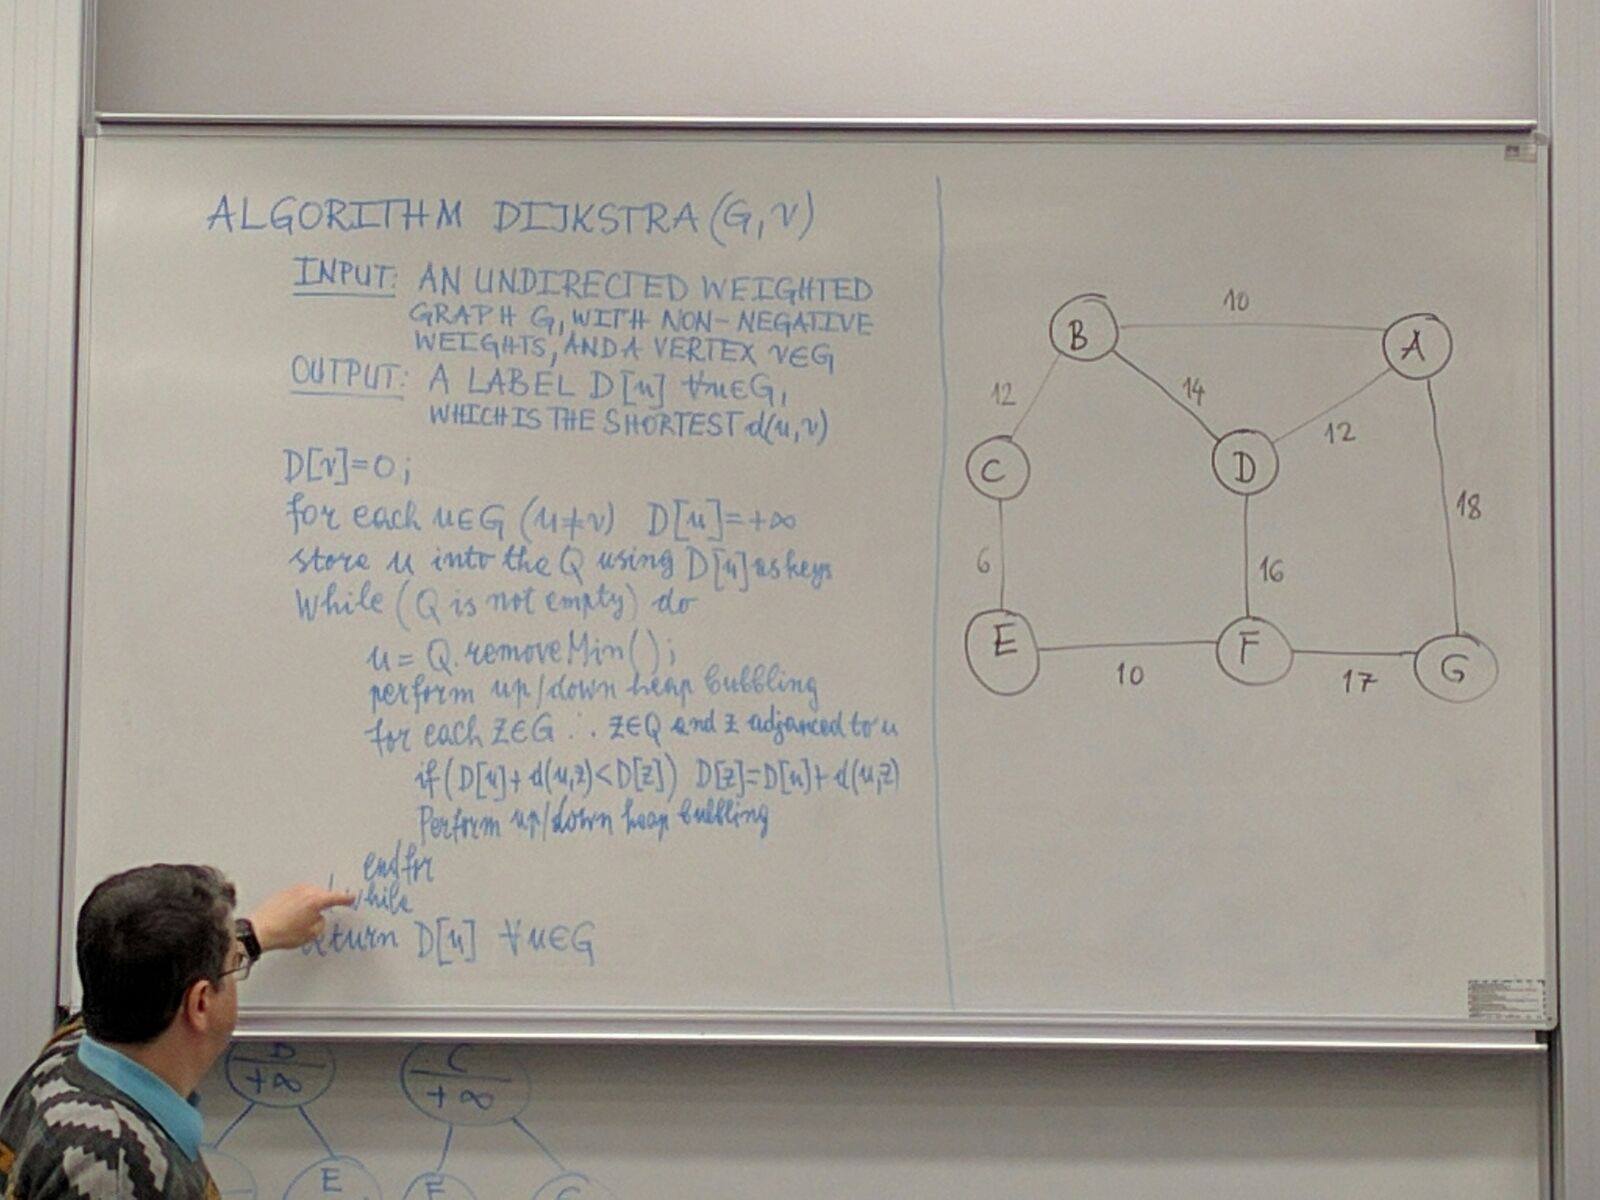 ALGORITHM DIJKSTRA (G, v)
INPUT: AN UNDIRECTED WEIGHTED
GRAPH G, WITH NON-NEGATIVE
WEIGHTS, AND A VERTEX v∈G
OUTPUT: A LABEL D[u] ∀u∈G,
WHICH IS THE SHORTEST d(u,v)
D[v]=0;
for each u∈G (u≠v) D[u]=+∞
store u into the Q using D[u] as keys
While (Q is not empty) do
u = Q.removeMin();
perform up/down heap bubbling
for each z∈G ∴ z∈Q and z adjanced to u
if (D[u]+d(u,z)<D[z]) D[z]=D[u]+d(u,z)
Perform up/down heap bubbling
endfor
while
return D[u] ∀u∈G
10
B
A
12
14
12
C
D
18
6
16
E
F
G
10
17
D
+∞
C
+∞
E